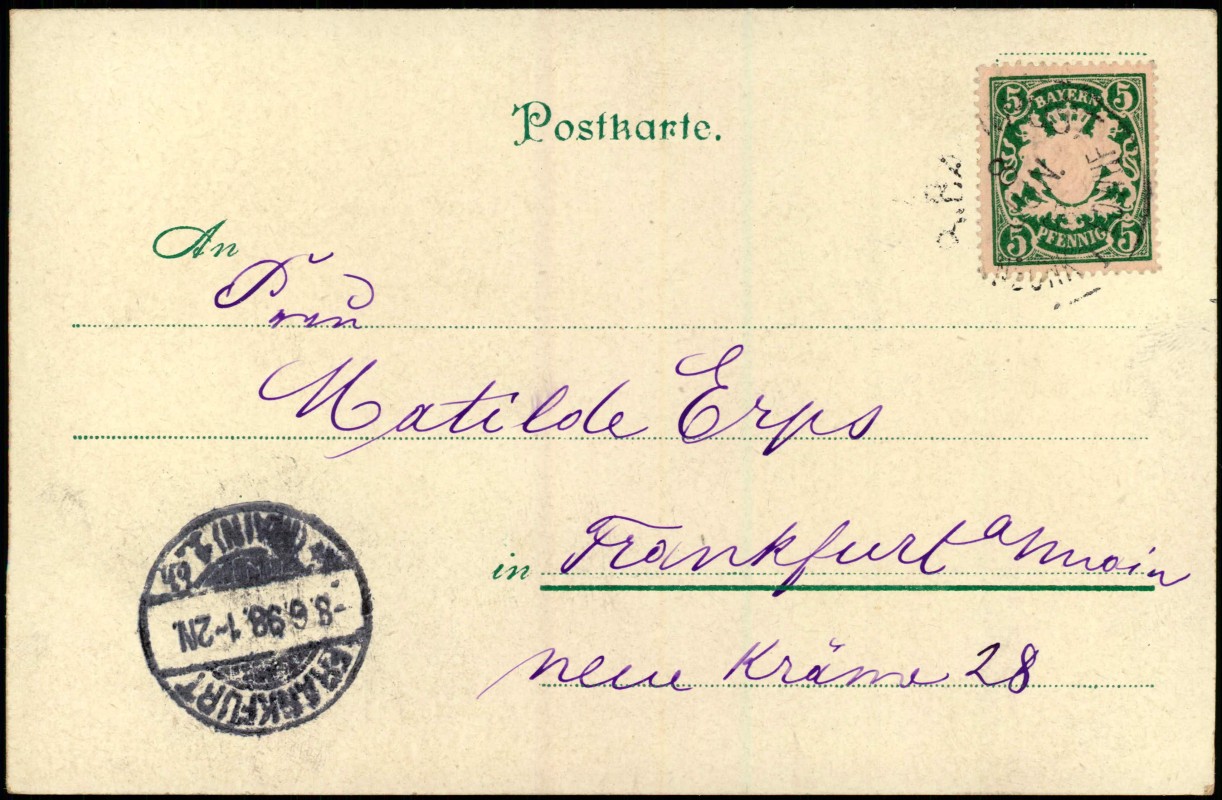 Postkarte.
5 BAYERN 5
5 PFENNIG 5
An Frau
Matilde Erps
in Frankfurt a Main
neue Kräme 28
FRANKFURT
-8.6.98.1-2N.
(MAIN) 1.